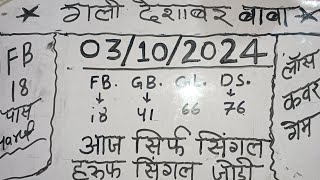 ★ गली देशावर बाबा ★
03/10/2024
FB. GB. GL. DS.
↓ ↓ ↓ ↓
18 41 66 76
आज सिर्फ सिंगल
हरुफ सिंगल जोड़ी
FB
18
पास
Haruf
लॉस
कवर
गेम